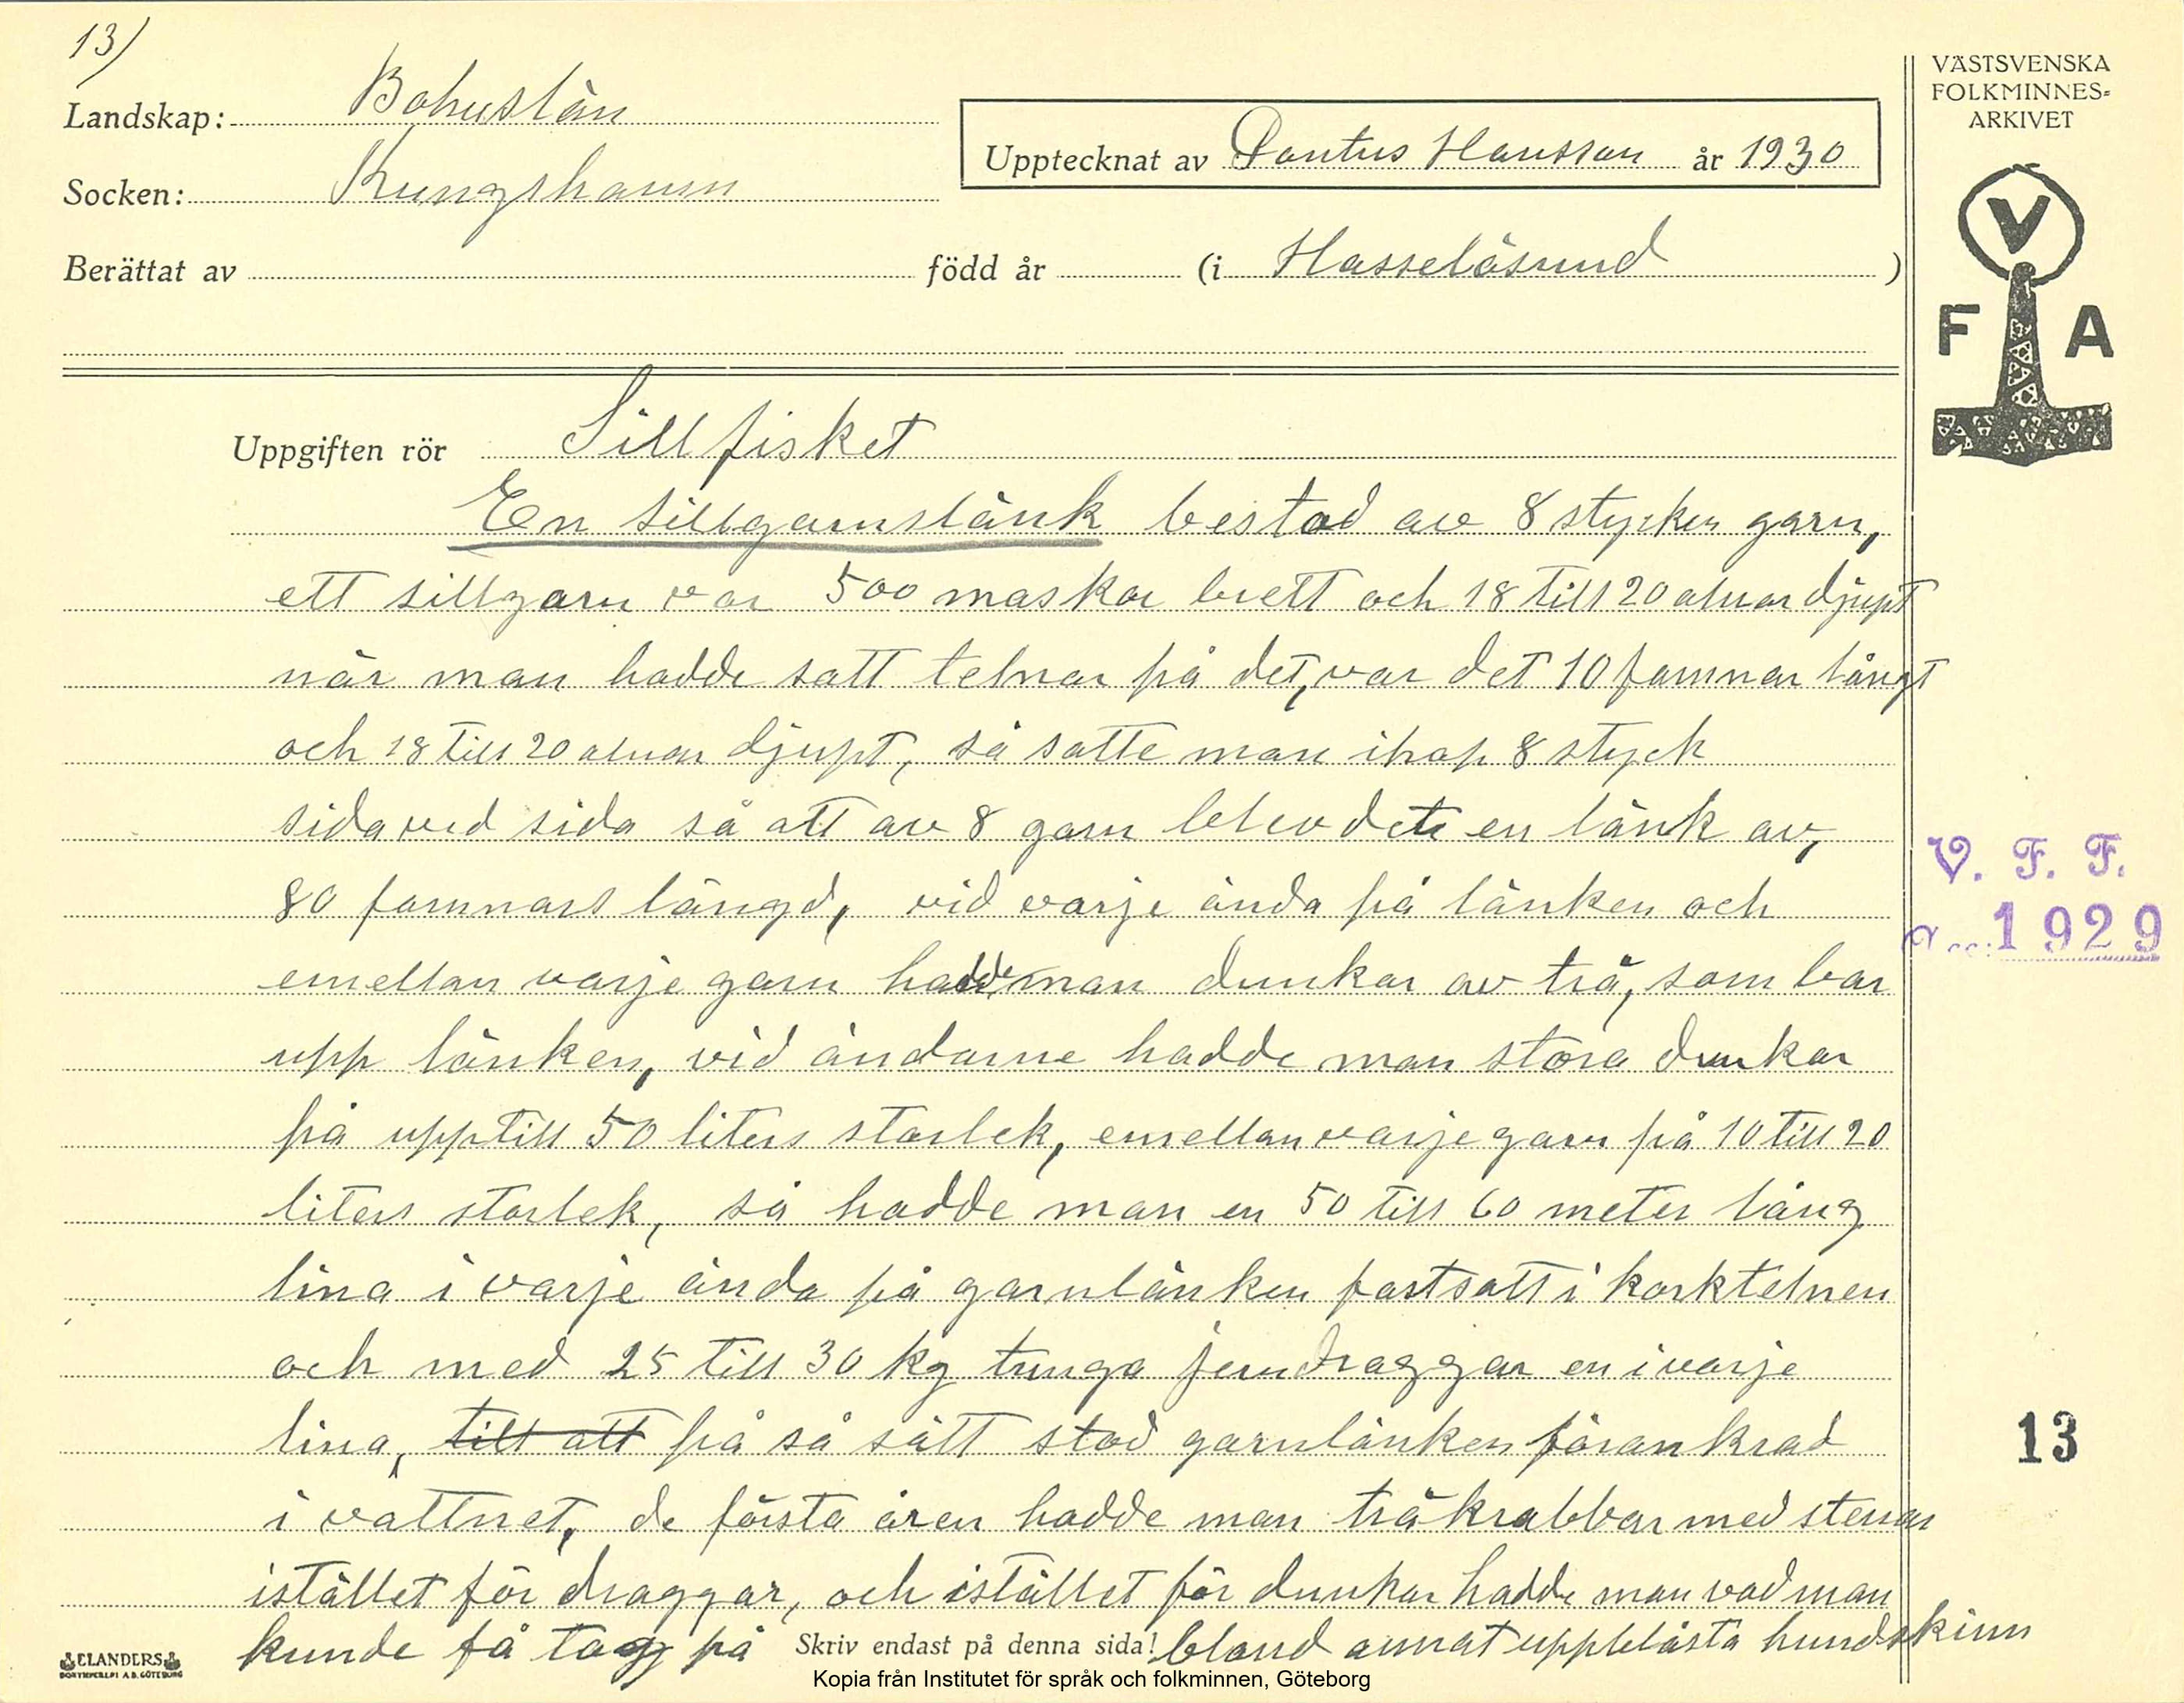 13)
Landskap: Bohuslän
Socken: Kungshamn
Upptecknat av Pontus Hansson år 1930
Berättat av född år (i Hasselösund )
VÄSTSVENSKA
FOLKMINNES=
ARKIVET
V
F A
Uppgiften rör Sillfisket
En sillgarnslänk bestod av 8 stycken garn,
ett sillgarn var 500 maskor brett och 18 till 20 alnar djupt
när man hadde satt telnar på det, var det 10 famnar långt
och 18 till 20 alnar djupt, så satte man ihop 8 styck
sida ved sida så att av 8 garn blev dete en länk av,
80 famnars längd, vid varje ända på länken och
emellan varje garn hadde man dunkar av trä, som bar
upp länken, vid ändarne hadde man stora dunkar
på upptill 50 liters storlek, emellan varje garn på 10 till 20
liters storlek, så hadde man en 50 till 60 meter lång
lina i varje ända på garnlänken fastsatt i korktelnen
och med 25 till 30 kg tunga jerndraggar en i varje
lina, till att på så sätt stod garnlänken förankrad
i vattnet, de första åren hadde man träkrabbar med stenar
istället för draggar, och istället för dunkar hadde man vad man
kunde få tag på Skriv endast på denna sida! bland annat uppblåsta hundskinn
V. F. F.
1929
13
ELANDERS
BOKTRYCKERI A.B. GÖTEBORG
Kopia från Institutet för språk och folkminnen, Göteborg